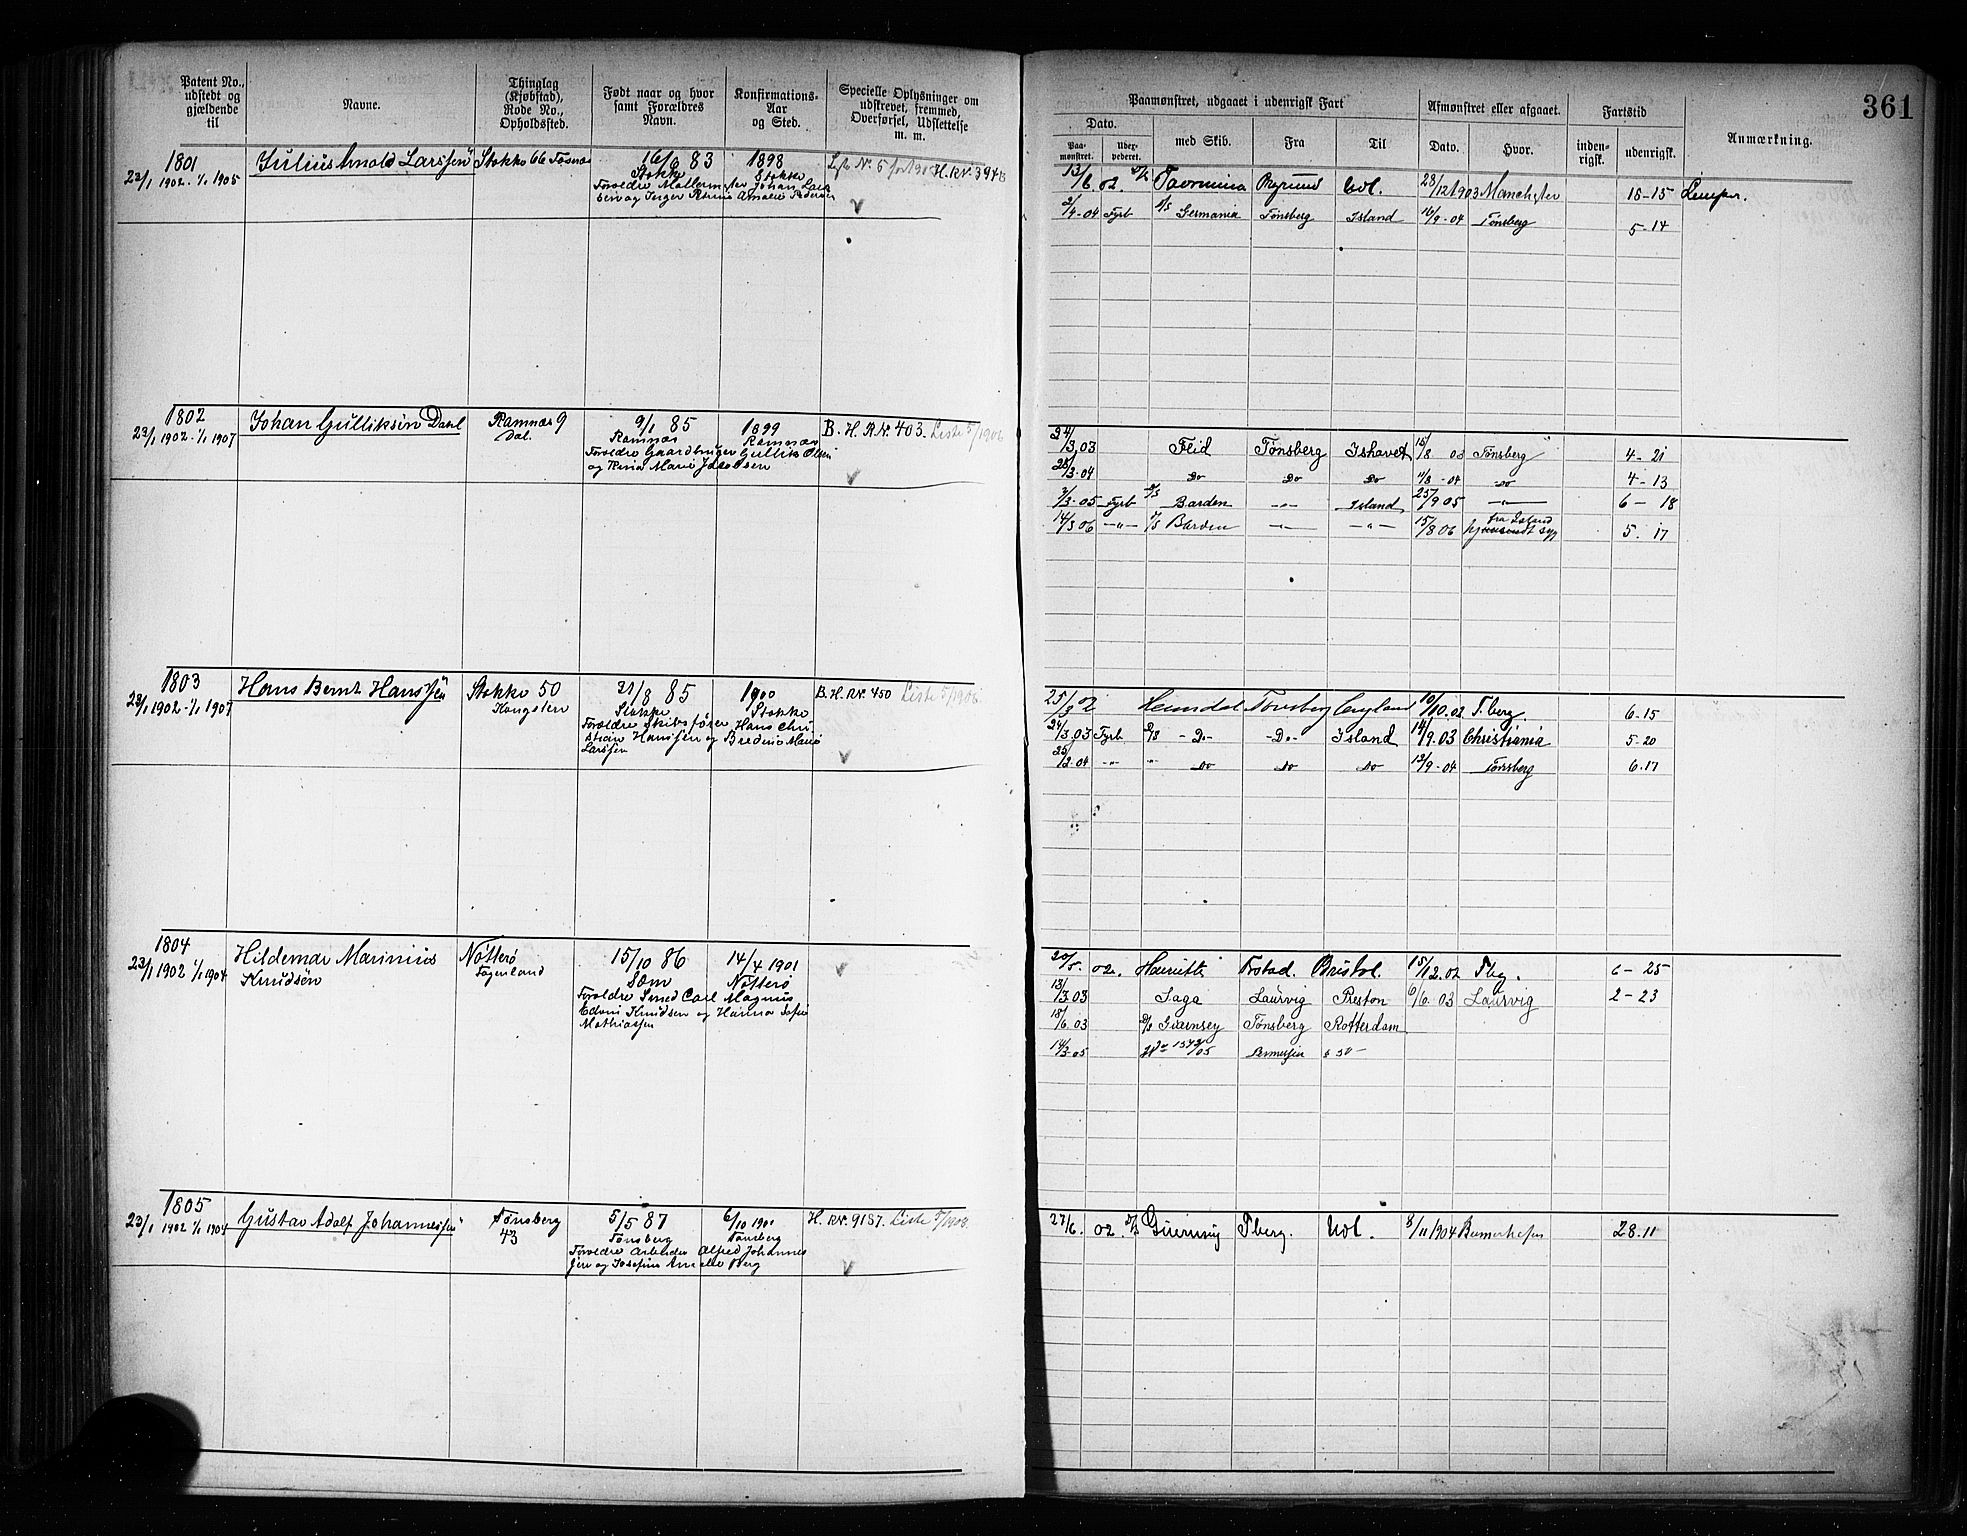 361
Patent No., udstedt og gjældende til
Navne.
Thinglag (Kjøbstad), Rode No., Opholdssted.
Født naar og hvor samt Forældres Navn.
Konfirmations-Aar og Sted.
Specielle Oplysninger om udskrevet, fremmed, Overførsel, Udslettelse m. m.
Paamønstret, udgaaet i udenrigsk Fart
Afmønstret eller afgaaet.
Fartstid
Anmærkning.
Dato.
Paa-mønstret.
med Skib.
Fra
Til
Dato.
Hvor.
inden-rigsk.
udenrigsk.
1801
23/1 1902 - 1/1 1905
Julius Arnold Larssen
Stokke 66
16/6 83
Stokke
1898
Stokke
Forældre
Johan
og Inger
H. RN. 394
13/6 02. Taormina 28/12 1903 Manchester 18-15
2/4-04 Fyrb Germania Tønsberg Island 16/9-04 Tønsberg 5-14
1802
23/1 1902 - 1/1 1907
Johan Gulliksen Dahl
Ramnæs 9
Dal.
9/1 85
Ramnæs
1899
Ramnæs
Forældre Gaardbruger Gullik Olsen
og Maria Jacobsen
B. H. RN. 403. Liste 5/1906
24/3 03 Tønsberg Ishavet 15/8 03 Tønsberg 4-21
28/3-04 Do Do Do 11/8-04 Do 4-13
7/3-05 Fyrb Barden -"- Island 25/9 05 -"- 6-18
14/3 06 -"- Barden -"- -"- 15/8 06 fra Island 5-17
1803
23/1 1902 - 1/1 1907
Hans Bernt Hanssen
Stokke 50
31/8 85
Stokke
1900
Stokke
Forældre Skibsfører Hans Chri
stian Hanssen og Bredine Marie
Larssen
B. H. RN. 450 Liste 5/1906
25/3 02 Heimdal Tønsberg England 10/10.02 T.berg. 6-15
24/3 03 Fyrb - Do - - Do - Island 14/9.03 Christiania 5-20
25/2 04 -"- -"- Do Do Do 13/9-04 Tønsberg 6.17
1804
23/1 1902 1/1 1904
Hildemar Marinius
Knudsen
Nøtterø
Fagenland
15/10 86
Sem
14/4 1901
Nøtterø
Forældre Smed Carl Magnus
Edvin Knudsen og Hanna Sofie
Mathiassen
20/5. 02. Bristol. 15/12.02 Tbg. 6-25
13/3 03 Saga Laurvig Preston 6/6.03 Laurvig 2-23
18/6 03 Guernsey Tønsberg Rotterdam
14/3-05
1805
23/1 1902 1/1 1904
Gustav Adolf Johannessen
Tønsberg
43
5/5 87
Tønsberg
6/10 1901
Tønsberg
Forældre Arbeider Alfred Johannes
sen og Josefine Amalie Berg
H. RN. 9187. Liste 5/1908
27/6. 02. Tberg. Udl. 8/11 1904 28.11